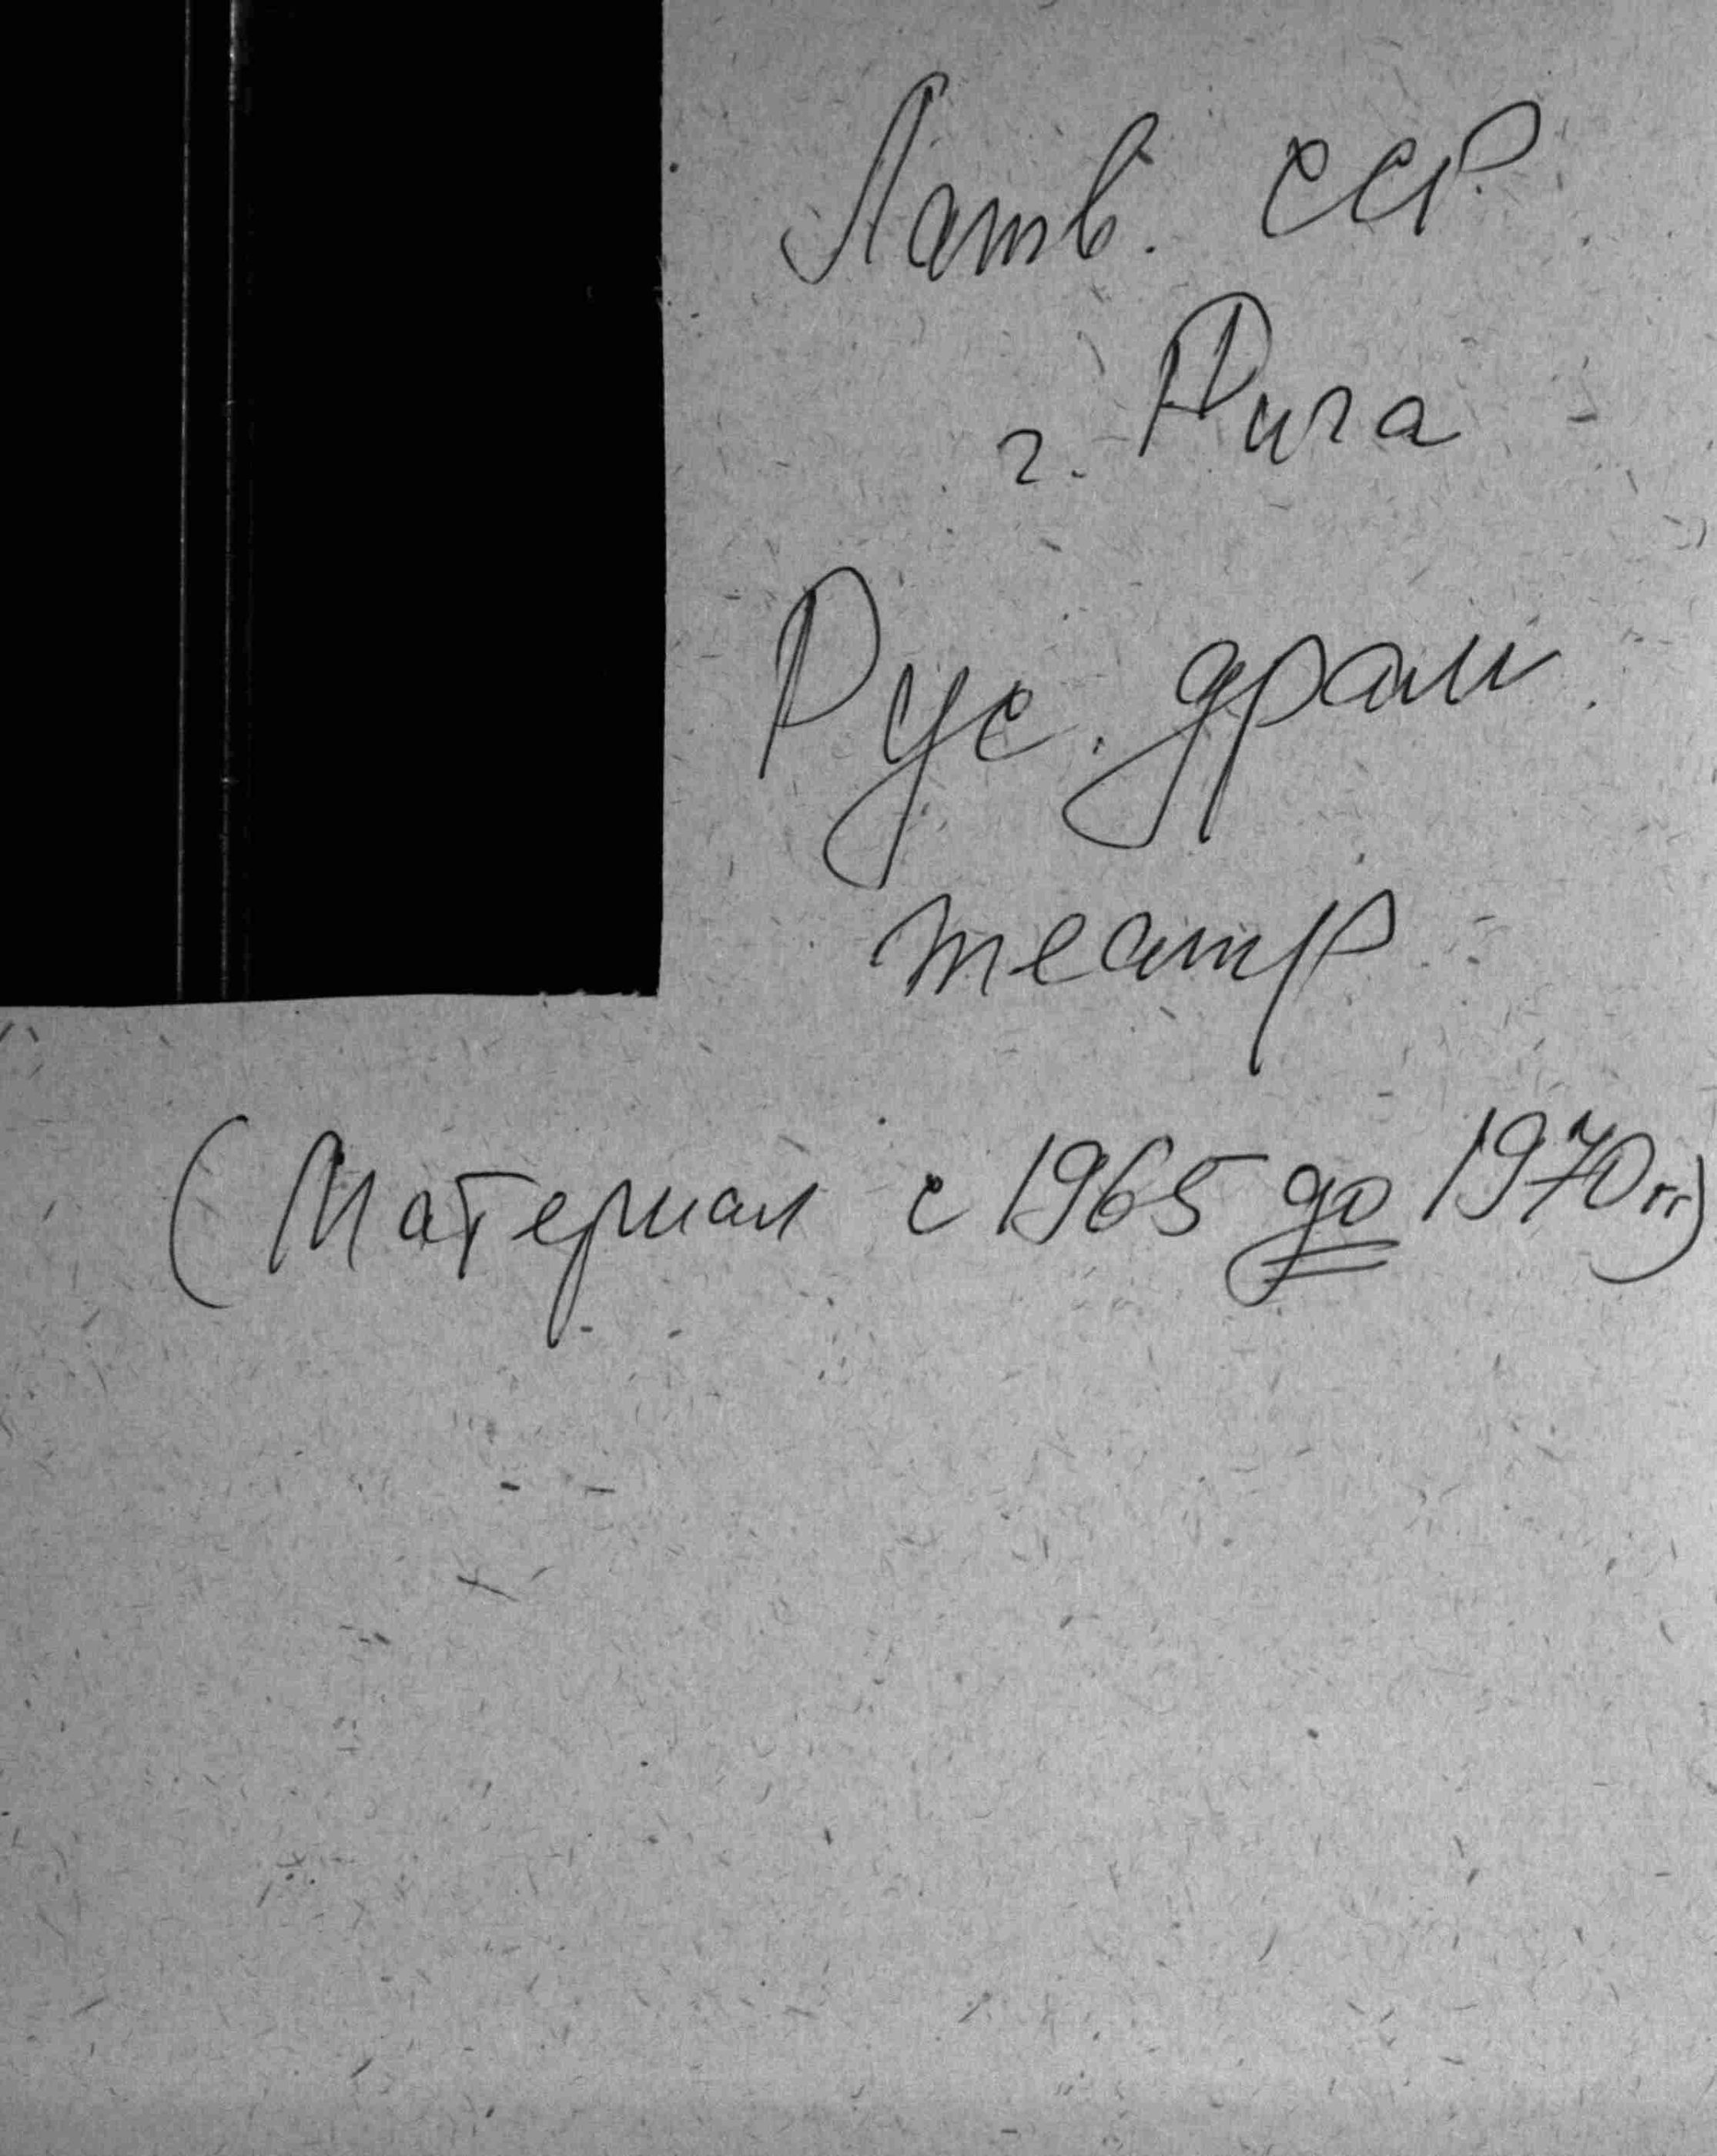 Латв. ССР
г. Рига
Рус. драм.
театр
(Материал с 1965 до 1970 гг)